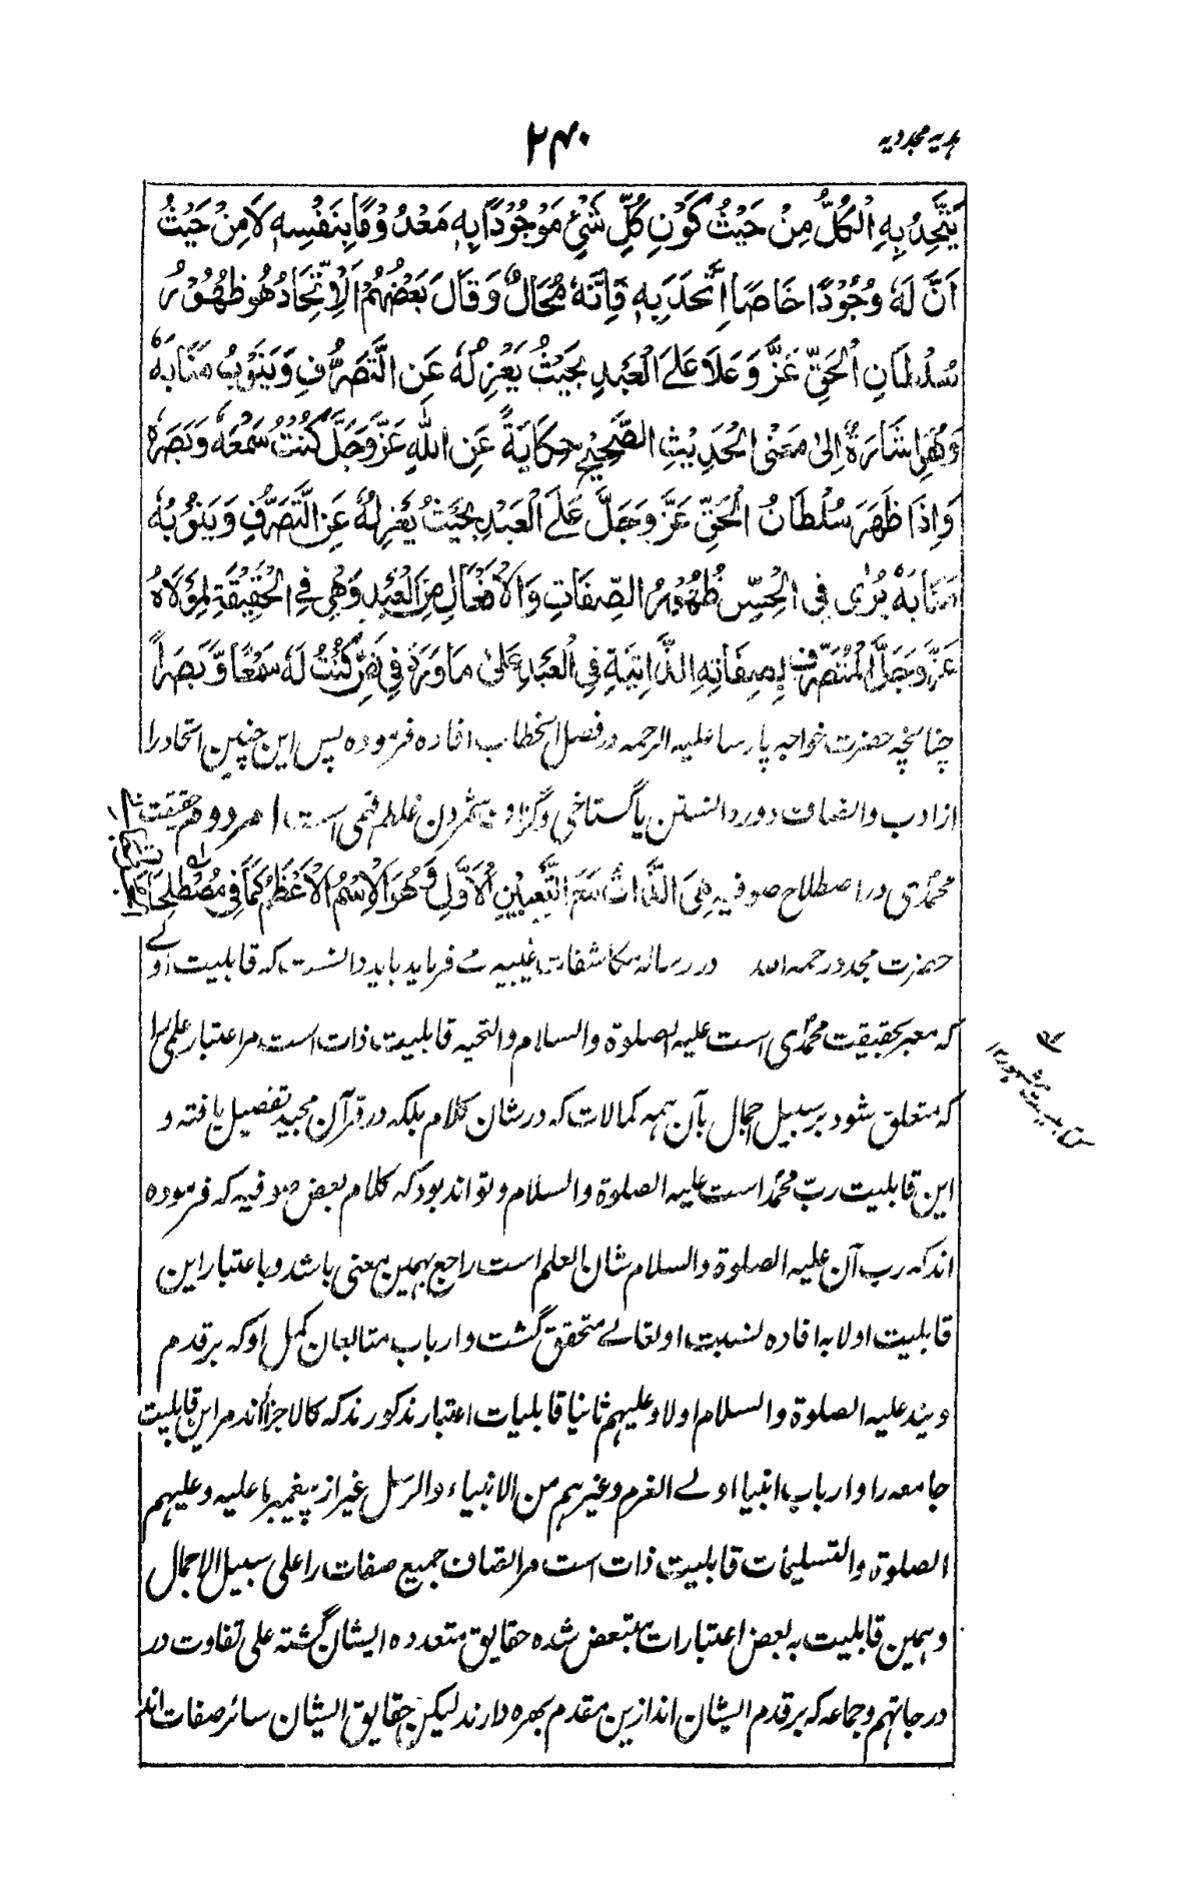 ہدیہ مجددیہ
۲۴۰
يَتَّحِدُ بِهِ الْكُلُّ مِنْ حَيْثُ كَوْنِ كُلِّ شَيْءٍ مَوْجُوْدًا بِهٖ مَعْدُوْمًا بِنَفْسِهٖ لَا مِنْ حَيْثُ
اَنَّ لَهٗ وُجُوْدًا خَاصًّا اِتَّحَدَ بِهٖ فَاِنَّهٗ مُحَالٌ وَقَالَ بَعْضُهُمْ اَلْاِتِّحَادُ هُوَ ظُهُوْرُ
سُلْطَانِ الْحَقِّ عَزَّ وَعَلَا عَلَى الْعَبْدِ بِحَيْثُ يَعْزِلُهٗ عَنِ التَّصَرُّفِ وَيَنُوْبُ مَنَابَهٗ
وَهُوَ اِشَارَةٌ اِلٰى مَعْنَى الْحَدِيْثِ الصَّحِيْحِ حِكَايَةً عَنِ اللّٰهِ عَزَّ وَجَلَّ كُنْتُ سَمْعَهٗ وَبَصَرَهٗ
وَاِذَا ظَهَرَ سُلْطَانُ الْحَقِّ عَزَّ وَجَلَّ عَلَى الْعَبْدِ بِحَيْثُ يَعْزِلُهٗ عَنِ التَّصَرُّفِ وَيَنُوْبُهٗ
مَنَابَهٗ يُرٰى فِي الْحِسِّ ظُهُوْرُ الصِّفَاتِ وَالْاَفْعَالِ مِنَ الْعَبْدِ وَهِيَ فِي الْحَقِيْقَةِ لِمَوْلَاهُ
عَزَّ وَجَلَّ الْمُتَصَرِّفِ بِصِفَاتِهِ الذَّاتِيَةِ فِي الْعَبْدِ عَلٰى مَا وَرَدَ فِي كُنْتُ لَهٗ سَمْعًا وَّبَصَرًا
چنانچہ حضرت خواجہ پارسا علیہ الرحمہ در فصل الخطاب افادہ فرمودہ پس این چنین اتحاد را
از ادب و انصاف دور دانستن یا گستاخی و گزاف شمردن غلط فہمی است امر دوم حقیقت
محمدی در اصطلاح صوفیہ هِيَ الذَّاتُ مَعَ التَّعَيُّنِ الْاَوَّلِ وَهُوَ الْاِسْمُ الْاَعْظَمُ كَمَا فِي مُصْطَلِحَاتِ
حضرت مجدد رحمہ اللہ در رسالہ مکاشفات غیبیہ مے فرماید باید دانست کہ قابلیت اولے
کہ معبر بحقیقت محمدی است علیہ الصلوۃ والسلام والتحیہ قابلیت ذات است مر اعتبار علمی را
کہ متعلق شود بر سبیل اجمال بآن ہمہ کمالات کہ در شان کلام بلکہ در قرآن مجید تفصیل یافتہ و
این قابلیت رب محمد است علیہ الصلوۃ والسلام و تواند بود کہ کلام بعض صوفیہ کہ فرمودہ
اند کہ رب آن علیہ الصلوۃ والسلام شان العلم است راجع بہمین معنی باشد و باعتبار این
قابلیت اولا بہ افادہ نسبت او تعالے متحقق گشت و ارباب متابعان کمل او کہ بر قدم
ویند علیہ الصلوۃ والسلام اولا و علیہم ثانیا قابلیات اعتبار مذکورند کہ کالاجزا اند مر این قابلیت
جامعہ را و ارباب انبیا اولے العزم و غیرہم من الانبیاء والرسل غیر از پیغمبر ما علیہ و علیہم
الصلوۃ والتسلیمات قابلیت ذات است مر اتصاف جمیع صفات را علی سبیل الاجمال
و ہمین قابلیت بہ بعض اعتبارات متبعض شدہ حقایق متعددہ ایشان گشتہ علی تفاوت در
درجاتہم و جماعہ کہ بر قدم ایشان اند ازین مقدم بہرہ دارند لیکن حقایق ایشان سائر صفات اند